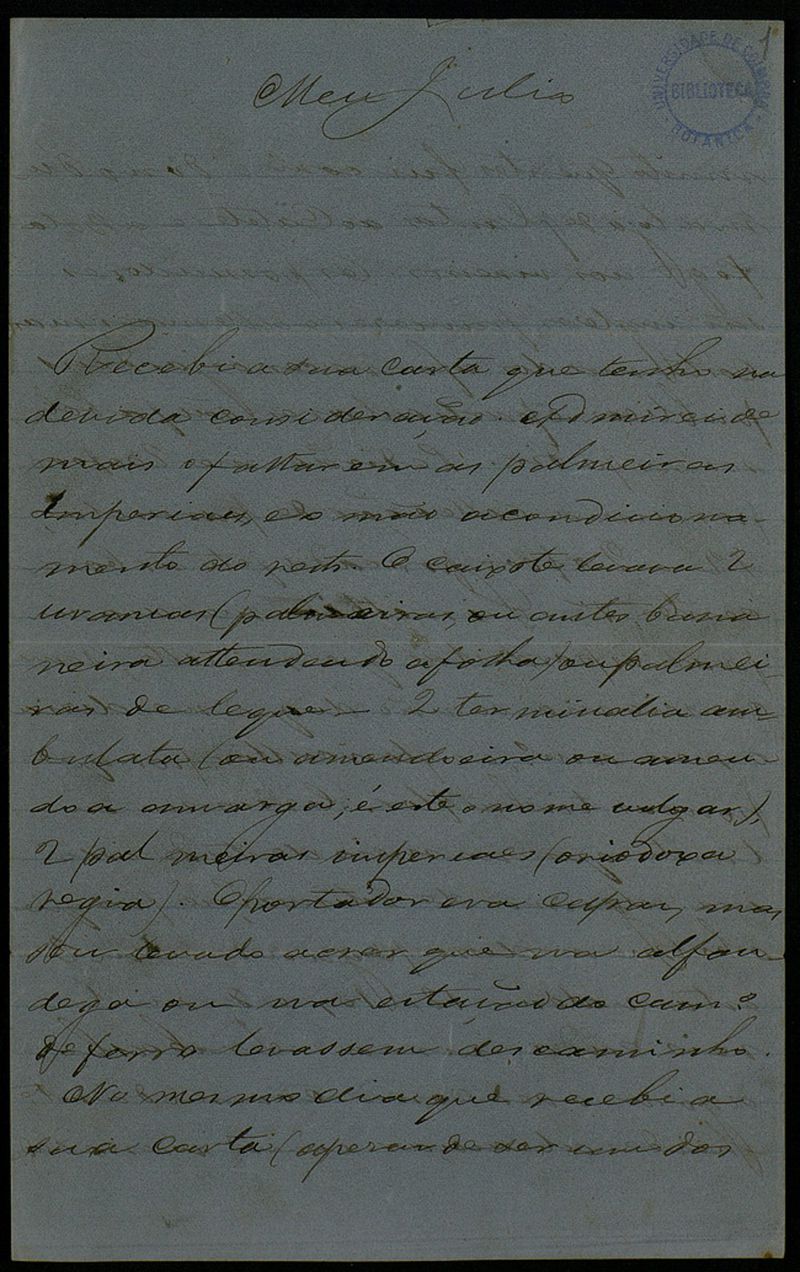 1
UNIVERSIDADE DE COIMBRA
BIBLIOTECA
BOTANICA
Meu Julio
Recebi a sua carta que tenho na
devida consideração. Admirei de
mais o faltarem as palmeiras
imperiaes, e o mao acondiciona-
mento do resto. O caixote levava 2
uranias (palmeiras, ou antes bana
neira attendendo a folha) ou palmei-
ras de leque – 2 terminalia
(ou amendoeira ou amen-
doa amarga, é este o nome vulgar),
2 palmeiras imperiaes (oriodoxa
regia). O portador era capaz, mas
sou levado a crer que na alfan-
dega ou na estação do cam.º
de ferro levassem descaminho.
No mesmo dia que recebi a
sua carta (apezar de ser um dos